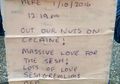 HERE 1/10/2016
12:19am
OUT OUR NUTS ON
COCAINE!
MASSIVE LOVE FOR
THE SESH!
LOTS OF LOVE